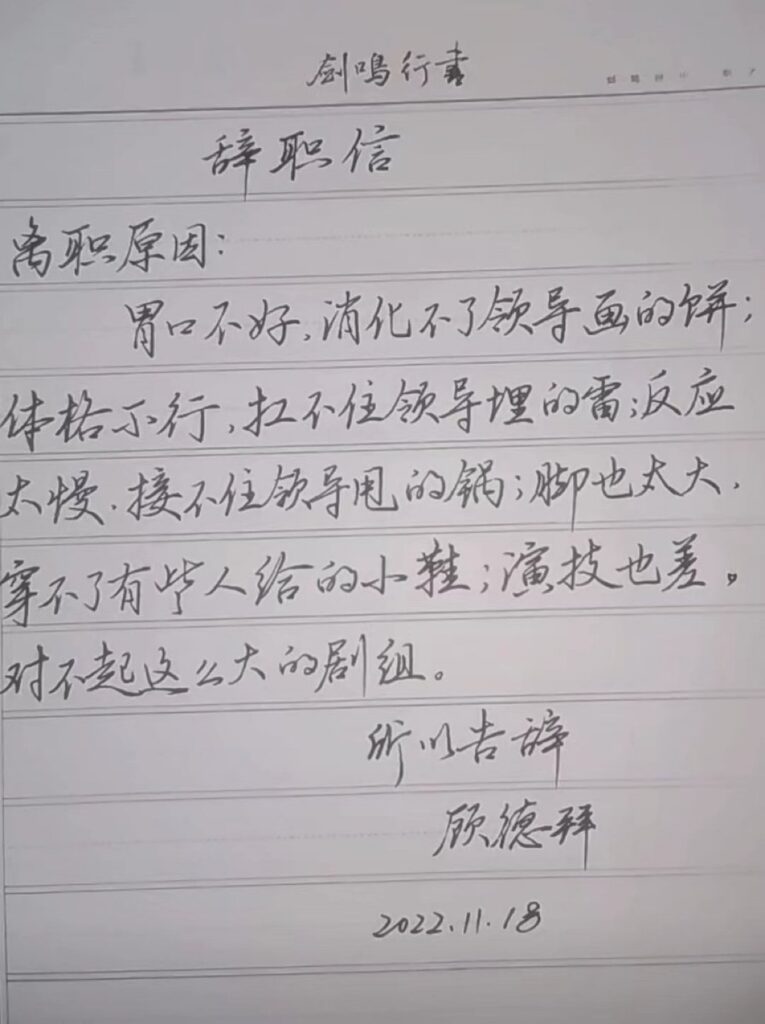 剑鸣行书
辞职信
离职原因:
胃口不好,消化不了领导画的饼;
体格不行,扛不住领导埋的雷;反应
太慢,接不住领导甩的锅;脚也太大,
穿不了有些人给的小鞋;演技也差。
对不起这么大的剧组。
所以告辞
顾德拜
2022.11.18